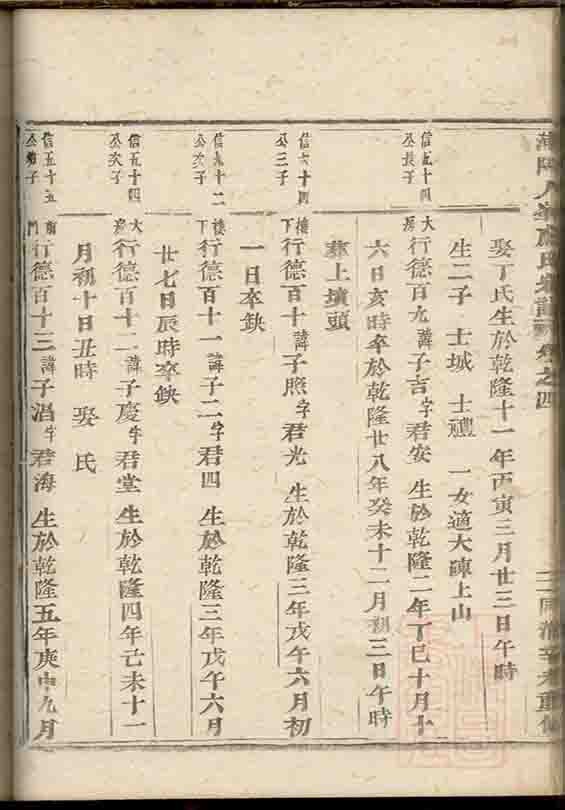 氏
卷之四
娶丁氏生於乾隆十一年丙寅三月廿三日午時
生二子 士城 士禮 一女適大陳上山
信五十四公長子
大房行德百九諱子吉字君安 生於乾隆二年丁巳十月十
六日亥時卒於乾隆廿八年癸未十二月初三日午時
葬上墳頭
信六十四公三子
樓下行德百十諱子照字君光 生於乾隆三年戊午六月初
一日卒缺
公次子
樓下行德百十一諱子二字君四 生於乾隆三年戊午六月
廿七日辰時卒缺
信五十四公次子
大房行德百十二諱子慶字君堂 生於乾隆四年己未十一
月初十日丑時 娶 氏
信五十五公 子
門行德百十三諱子滔字君海 生於乾隆五年庚申九月